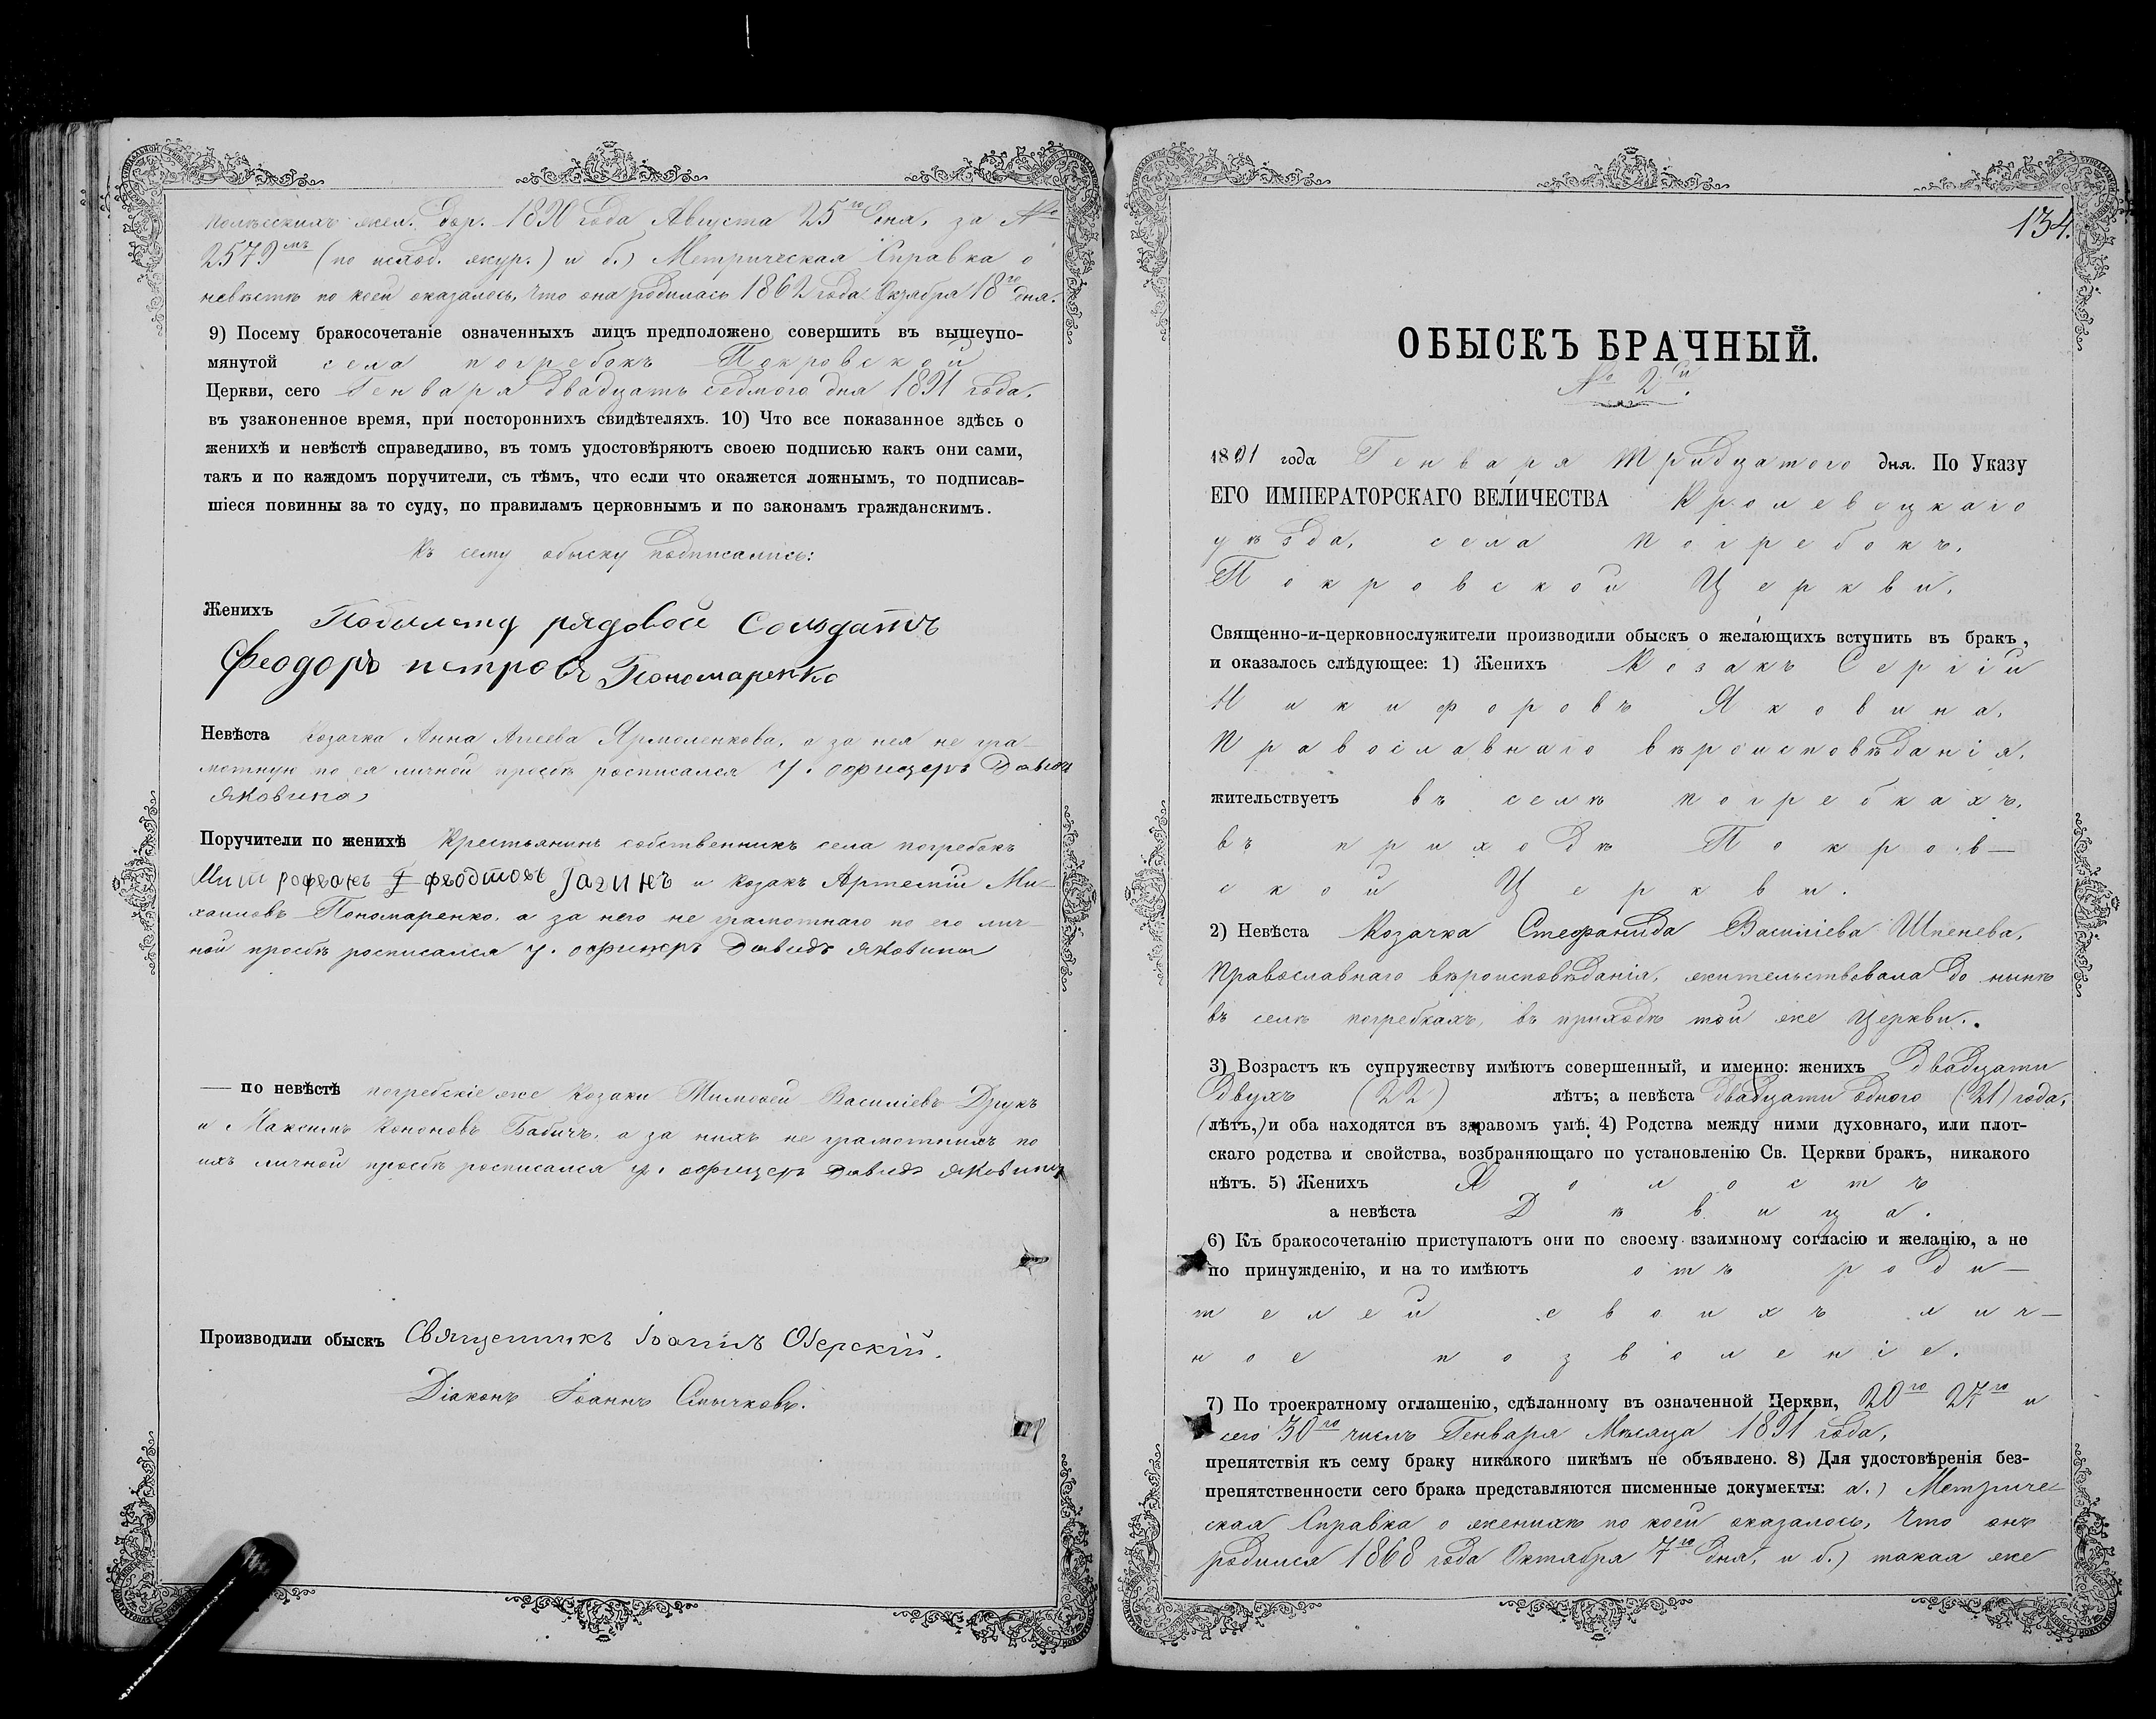 полѣсскихъ жел. дор. 1890 года Августа 25го дня, за №
2579мъ (по исход. жур.) и б.) Метрическая Справка о
невѣстѣ по коей оказалось, что она родилась 1862 года Октября 18го дня.
9) Посему бракосочетаніе означенныхъ лицъ предположено совершить въ вышеупо-
мянутой села погребокъ Покровской
Церкви, сего Генваря двадцать седмого дня 1891 года,
въ узаконенное время, при постороннихъ свидѣтеляхъ. 10) Что все показанное здѣсь о
женихѣ и невѣстѣ справедливо, въ томъ удостовѣряютъ своею подписью какъ они сами,
такъ и по каждомъ поручители, съ тѣмъ, что если что окажется ложнымъ, то подписав-
шіеся повинны за то суду, по правиламъ церковнымъ и по законамъ гражданскимъ.
Къ сему обыску подписались:
Женихъ рядовой Солдатъ
Феодоръ петровъ Пономаренко
Невѣста Козачка Анна Агеева Ярмоленкова, а за нея не гра-
мотную по ея личной просьбѣ росписался у. офицеръ Давидъ
Яковина
Поручители по женихѣ Крестьянинъ собственникъ села погребокъ
Митрофанъ и козакъ Артемій Ми-
хаиловъ Пономаренко, а за него не грамотнаго по его лич-
ной просьбѣ росписался у. офицеръ Давидъ Яковина
— по невѣстѣ погребскіе же козаки Тимофей Василіевъ Друкъ
и Максимъ Кононовъ Бабичъ, а за нихъ не грамотнихъ по
ихъ личной просьбѣ росписался у. офицеръ Давидъ Яковина
Производили обыскъ Священникъ Іоаннъ Озерскій.
Діаконъ Іоаннъ Смычковъ.
134.
ОБЫСКЪ БРАЧНЫЙ.
№ 2й.
1891 года Генваря тридцатого дня. По Указу
ЕГО ИМПЕРАТОРСКАГО ВЕЛИЧЕСТВА Кролевецкаго
уѣзда, села погребокъ,
Покровской Церкви,
Священно-и-церковнослужители производили обыскъ о желающихъ вступить въ бракъ,
и оказалось слѣдующее: 1) Женихъ Козакъ Сергій
Никифоровъ Яковина,
Православнаго вѣроисповѣданія,
жительствуетъ въ селѣ погребкахъ,
въ приходѣ Покров-
ской Церкви.
2) Невѣста Козачка Стефанида Василіева Шпенева,
Православнаго вѣроисповѣданія, жительствовала до нынѣ
въ селѣ погребкахъ, въ приходѣ той же Церкви.
3) Возрастъ къ супружеству имѣютъ совершенный, и именно: женихъ двадцати
двухъ (22) лѣтъ; а невѣста двадцати одного (21) года,
(лѣтъ,) и оба находятся въ здравомъ умѣ. 4) Родства между ними духовнаго, или плот-
скаго родства и свойства, возбраняющаго по установленію Св. Церкви бракъ, никакого
нѣтъ. 5) Женихъ Холостъ
а невѣста Дѣвица.
6) Къ бракосочетанію приступаютъ они по своему взаимному согласію и желанію, а не
по принужденію, и на то имѣютъ отъ роди-
телей своихъ лич-
ное позволеніе.
7) По троекратному оглашенію, сдѣланному въ означенной Церкви, 20го 27го и
сего 30го числъ Генваря Мѣсяца 1891 года,
препятствія къ сему браку никакого никѣмъ не объявлено. 8) Для удостовѣренія без-
препятственности сего брака представляются писменные документы: а.) Метриче-
ская Справка о женихѣ по коей оказалось, что онъ
родился 1868 года Октября 7го дня, и б.) такая же